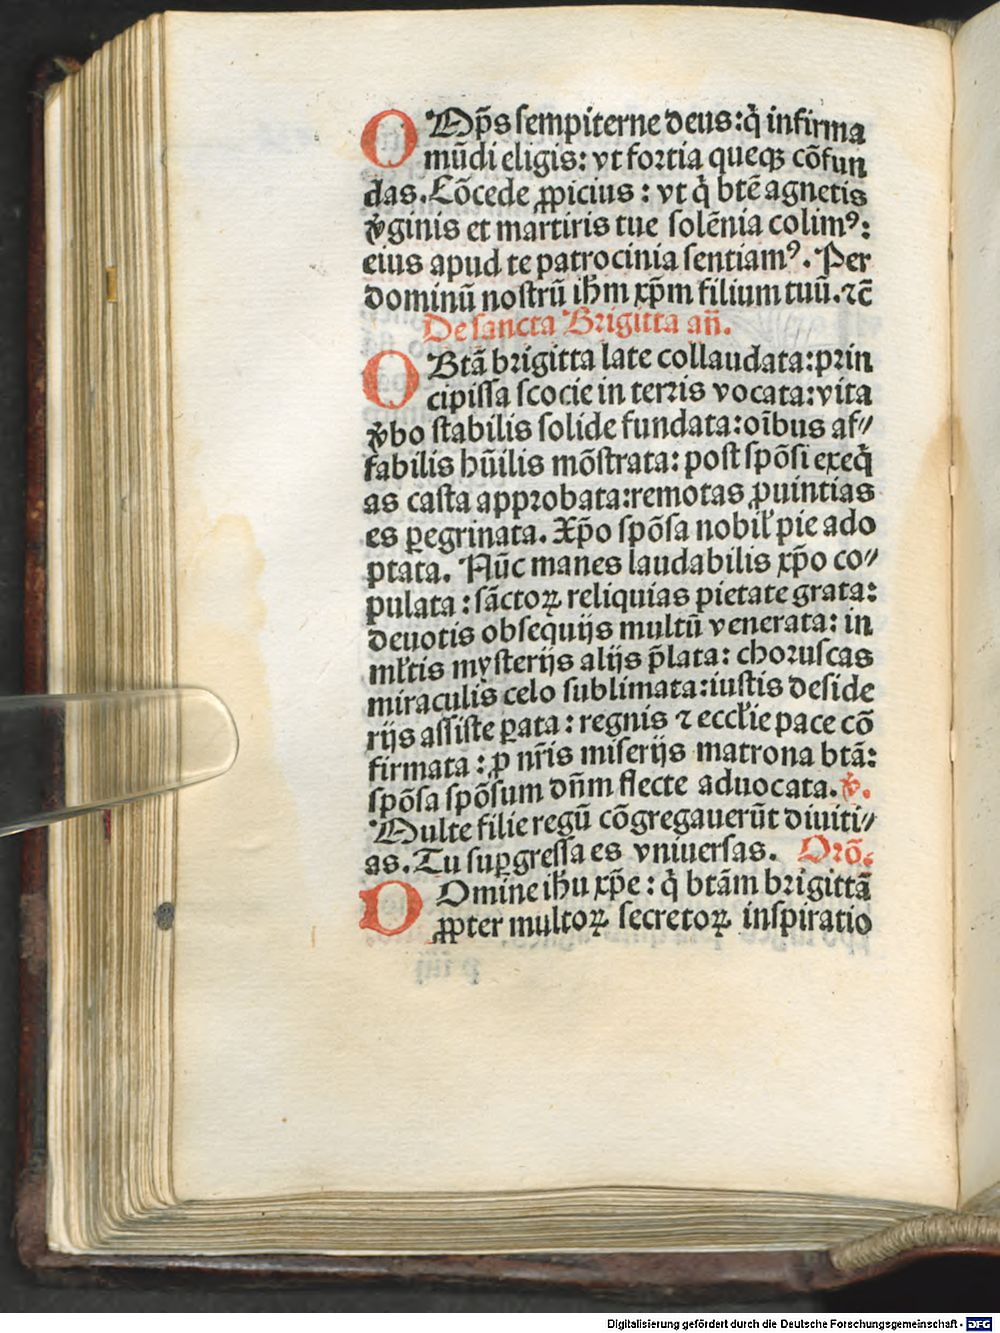 OMp̄s sempiterne deus: q̇ infirma
mūdi eligis: vt foꝛtia queqꝫ cōfun
das. Cōcede ꝓpicius: vt q̇ btē agnetis
v̓ginis et martiris tue solēnia colimꝰ:
eius apud te patrocinia sentiamꝰ. Per
dominū nostrū ihm̄ xp̄m filium tuū. ⁊c̄
De sancta Brigitta añ.
OBtā bꝛigitta late collaudata: pꝛin
cipissa scocie in terꝛis vocata: vita
v̓bo stabilis solide fundata: oībus af⸗
fabilis hūilis mōstrata: post spōsi exeq̇
as casta appꝛobata: remotas ꝓuintias
es ꝑegrinata. Xp̄o spōsa nobil̓ pie ado
ptata. Nūc manes laudabilis xp̄o co⸗
pulata: sāctoꝝ reliquias pietate grata:
deuotis obsequijs multū venerata: in
ml̓tis mysterijs alijs p̄lata: choꝛuscas
miraculis celo sublimata: iustis deside
rijs assiste ꝑata: regnis ⁊ eccl̓ie pace cō
firmata: ꝓ nr̄is miserijs matrona btā:
spōsa spōsum dn̄m flecte aduocata. v̓.
Multe filie regū cōgregauerūt diuiti⸗
as. Tu suꝑgressa es vniuersas. Oꝛō.
DOmine ihu xp̄e: q̇ btām bꝛigittā
ꝓpter multoꝝ secretoꝝ inspiratio
Digitalisierung gefördert durch die Deutsche Forschungsgemeinschaft - DFG